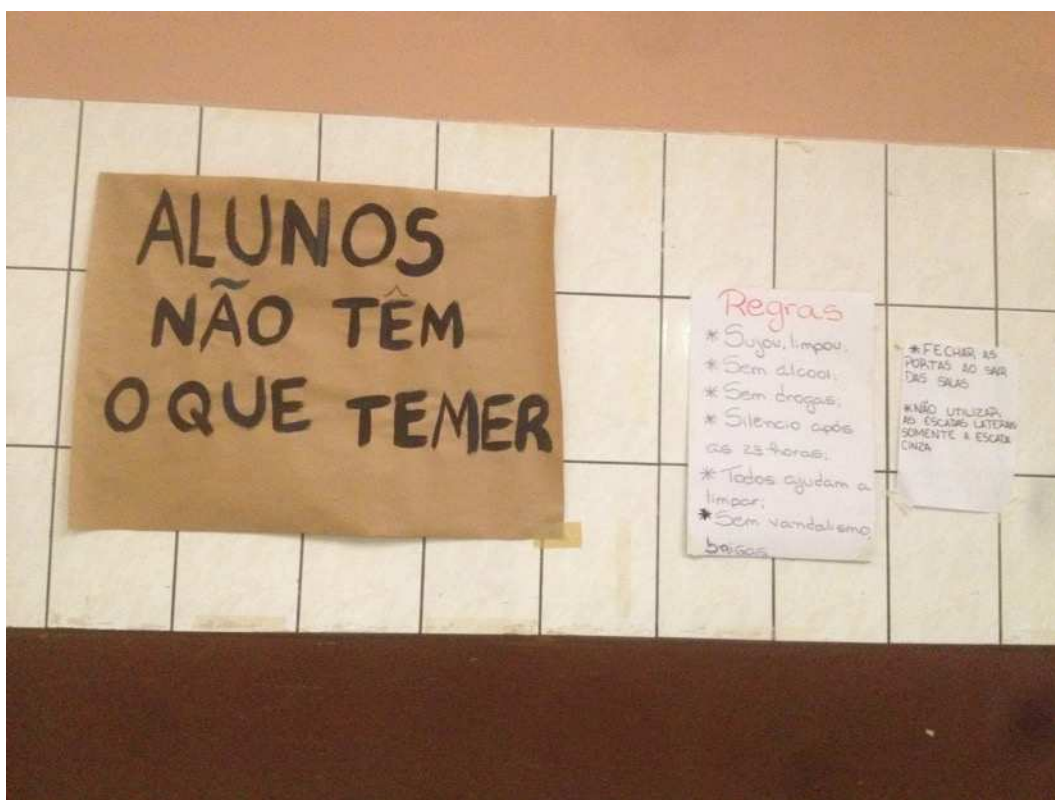 ALUNOS
NÃO TÊM
O QUE TEMER
Regras
* Sujou, limpou;
* Sem álcool;
* Sem drogas;
* Silêncio após
as 23 horas;
* Todos ajudam a
limpar;
* Sem vandalismo,
brigas
* FECHAR AS
PORTAS AO SAIR
DAS SALAS
* NÃO UTILIZAR
AS ESCADAS LATERAIS
SOMENTE A ESCADA
CINZA